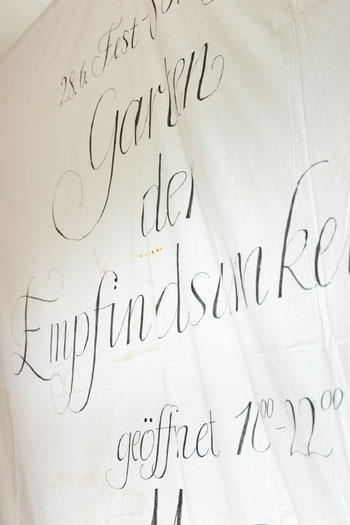 28.6. Fest-
Garten
der
Empfindsamkei
geöffnet 10⁰⁰-22⁰⁰